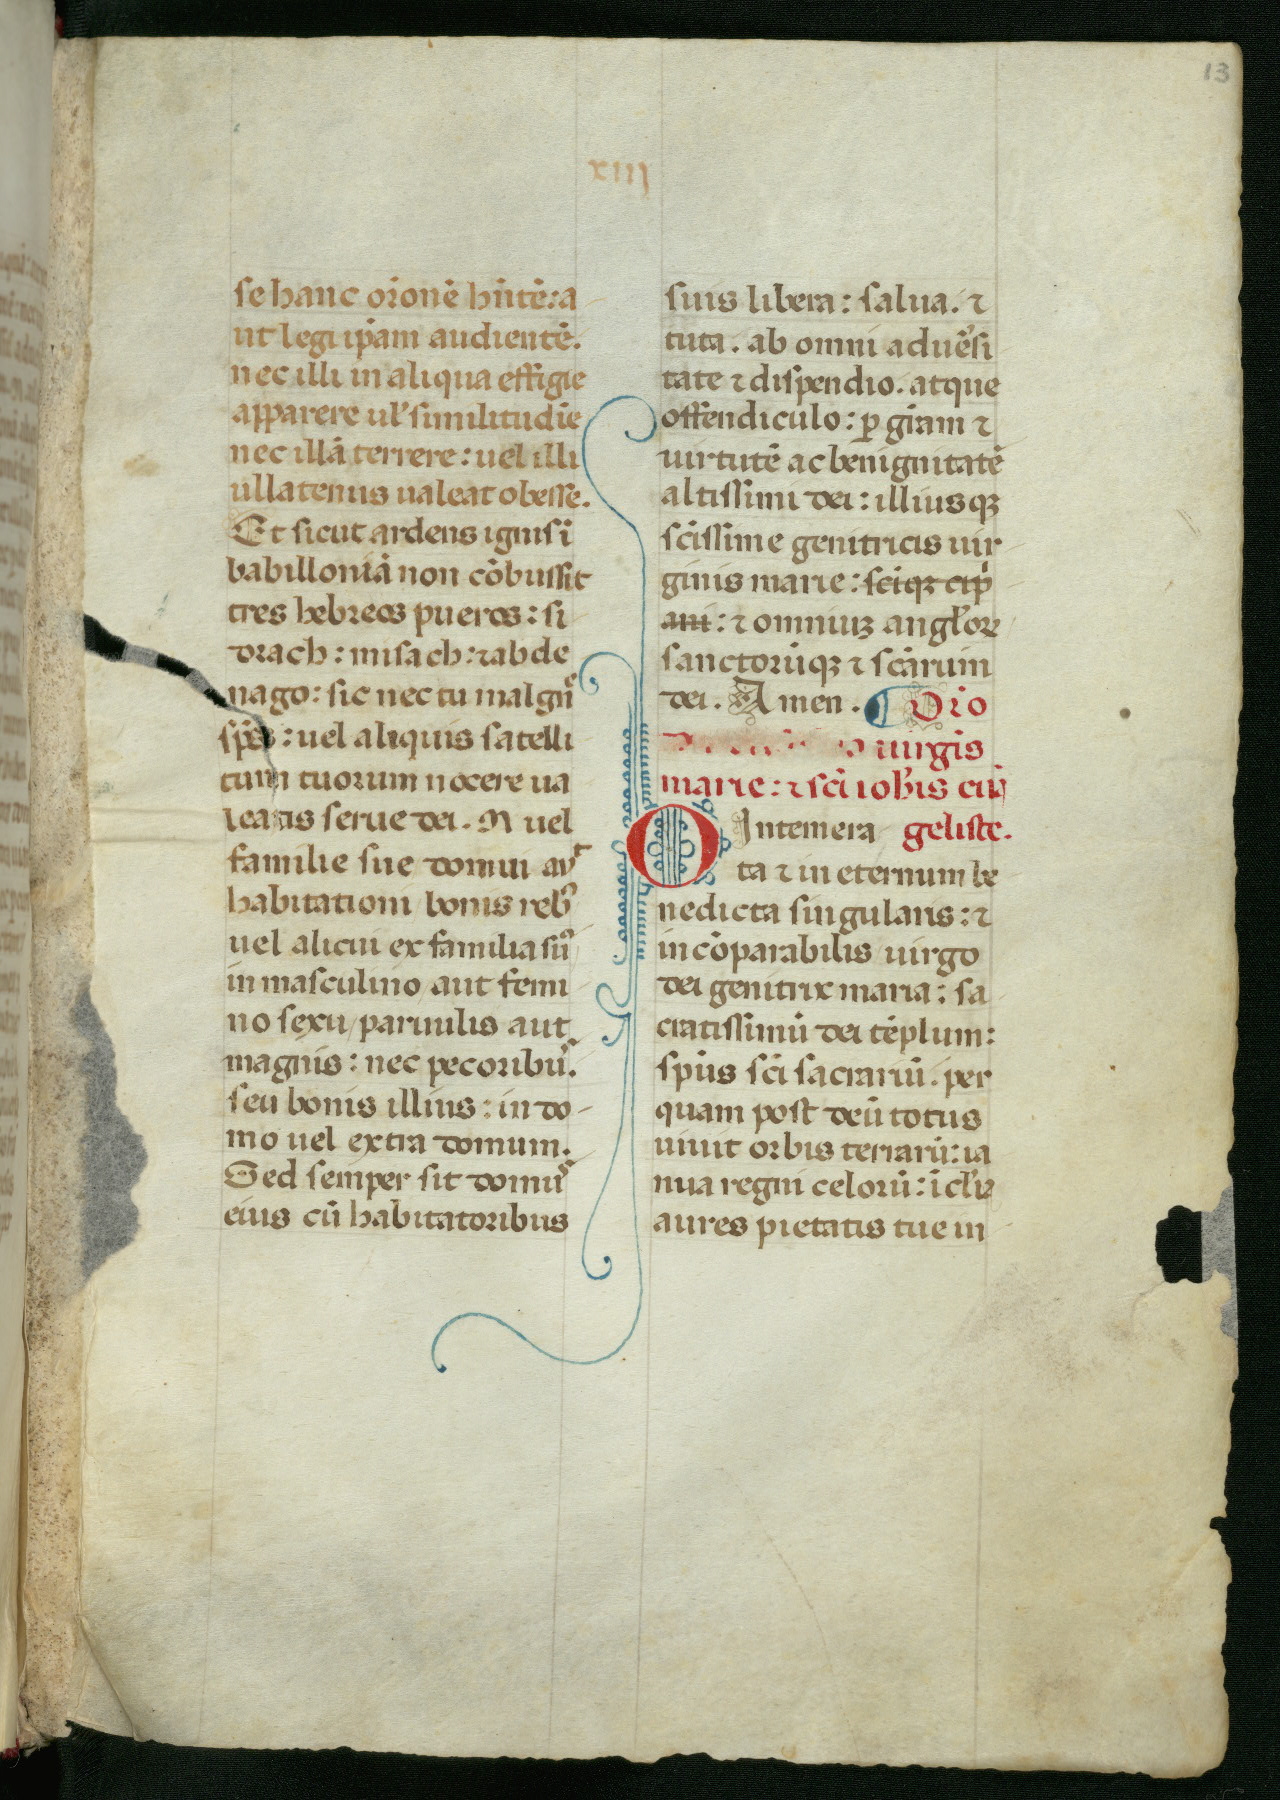 13
xiii
se hanc or̄onē hn̄tē: a
ut legi ip̄am audientē.
nec illi in aliqua effigie
apparere ul' similitudīe
nec illā terrere: uel illi
ullatenus ualeat obesse.
Et sicut ardens ignis ī
babilloniā non cōbussit
tres hebreos pueros: si
drach: misach: ⁊ abde
nago: sic nec tu malgn̄e
sp̄s: uel aliquis satelli
tum tuorum nocere ua
leatis serue dei. N uel
familie sue domui aut
habitationi bonis reb9
uel alicui ex familia
in masculino aut femi
no sexu paruulis aut
magnis: nec pecoribus.
seu bonis illius: in do-
mo uel extra domum.
Sed semper sit domus
eius cū habitatoribus
suis libera: salua. ⁊
tuta. ab omni aduēsi
tate ⁊ dispendio. atque
offendiculo: ꝑ gīam ⁊
uirtutē ac benignitatē
altissimi dei: illiusqꝫ
scīssime genitricis uir
ginis marie: scīqꝫ cip̄
ani: ⁊ omniuꝫ angl'oꝝ
sanctorūqꝫ ⁊ scārum
dei. Amen. Orō
uirgis
marie: ⁊ scī ioh̄is euā
O Intemera geliste.
ta ⁊ in eternum be
nedicta singularis: ⁊
incōparabilis uirgo
dei genitrix maria: sa
cratissimū dei tēplum:
sp̄us scī sacrariū. per
quam post deū totus
uiuit orbis terrarū: ia
nua regni celorū: īcl'ia
aures pietatis tue in